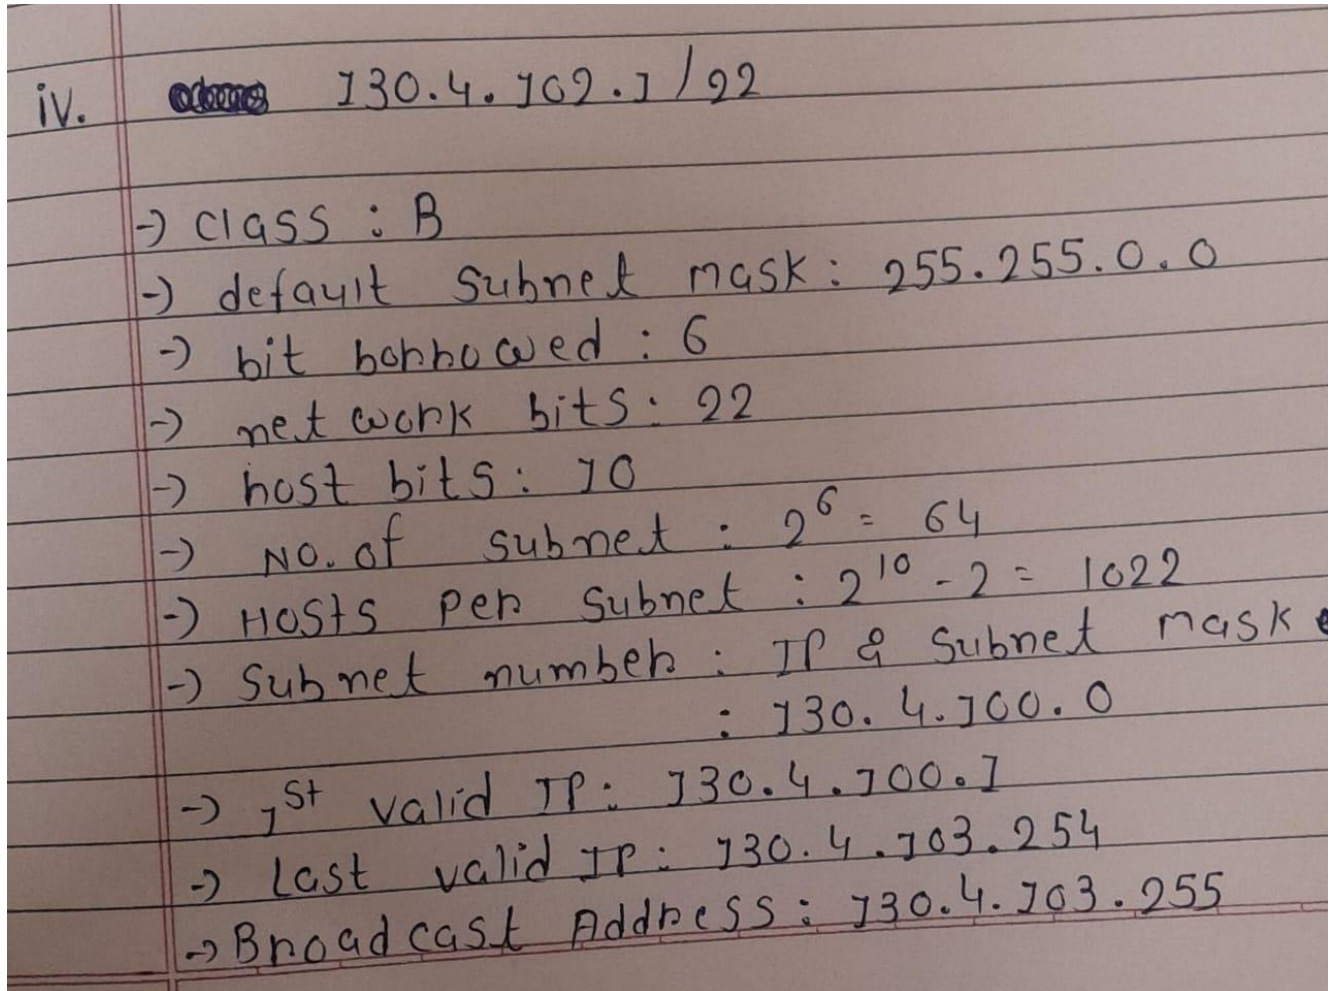 iv. 130.4.102.1/22
-) Class : B
-) default Subnet mask : 255.255.0.0
-) bit borrowed : 6
-) network bits : 22
-) host bits : 10
-) NO. of subnet : 2^6 = 64
-) Hosts per Subnet : 2^10 - 2 = 1022
-) Subnet number : IP & Subnet mask
: 130.4.100.0
-) 1st valid IP : 130.4.100.1
-) Last valid IP : 130.4.103.254
-) Broadcast Address : 130.4.103.255